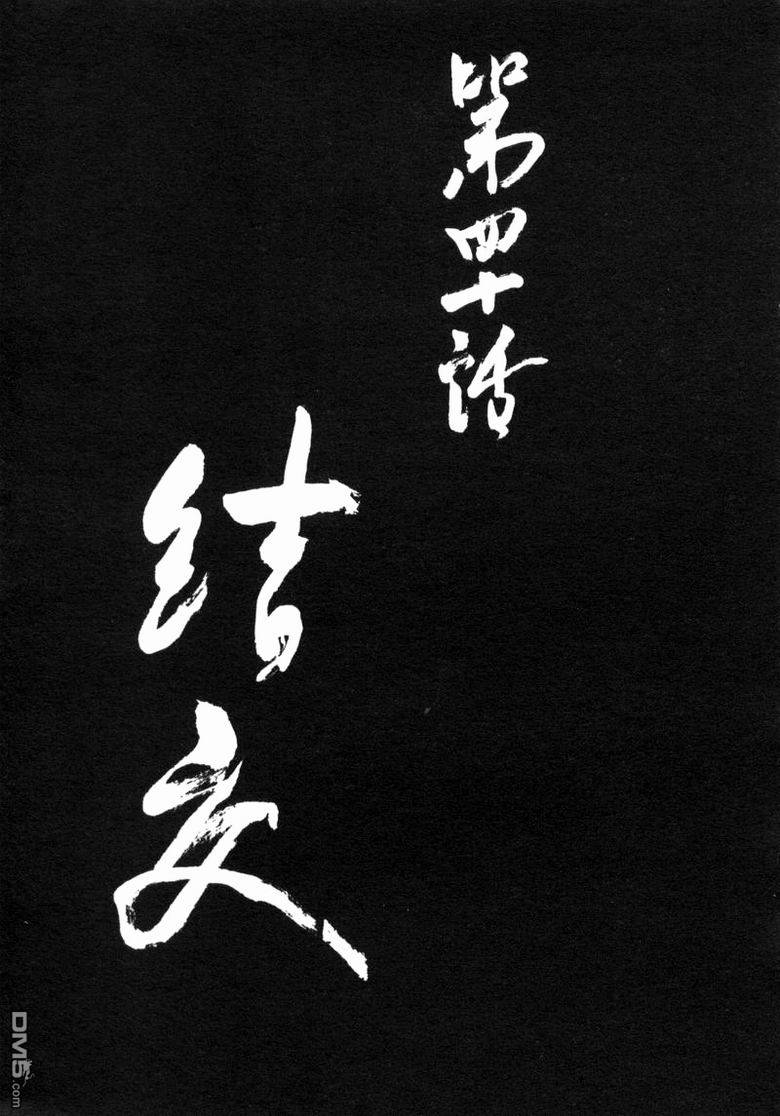 第四十話
結交
DM5.com